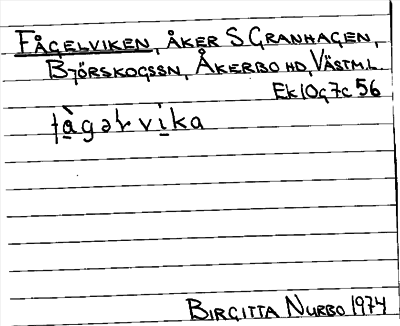 FÅGELVIKEN, ÅKER S GRANHAGEN,
BJÖRSKOGSSN, ÅKERBO HD, VÄSTML.
Ek 10g7c 56
fà̱gəɫvi̱ka
BIRGITTA NURBO 1974